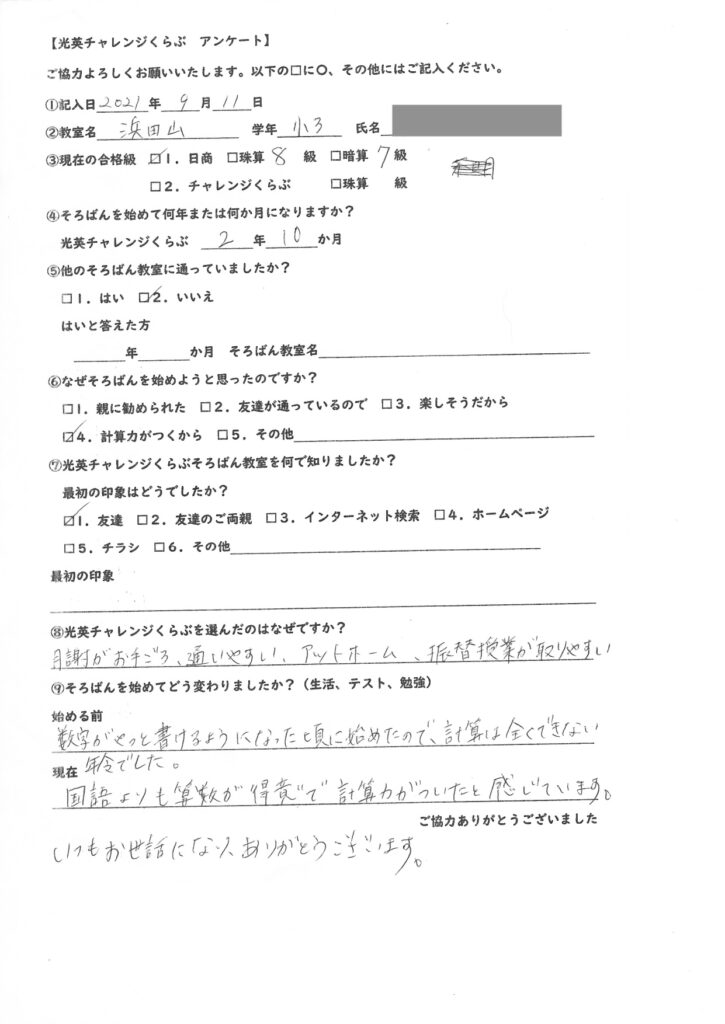 【光英チャレンジくらぶ アンケート】
ご協力よろしくお願いいたします。以下の□に○、その他にはご記入ください。
①記入日 2021 年 9 月 11 日
②教室名 浜田山 学年 小3 氏名
③現在の合格級 ☑1．日商 □珠算 8 級 □暗算 7 級
□2．チャレンジくらぶ □珠算 級
④そろばんを始めて何年または何か月になりますか？
光英チャレンジくらぶ 2 年 10 か月
⑤他のそろばん教室に通っていましたか？
□1．はい ☑2．いいえ
はいと答えた方
年 か月 そろばん教室名
⑥なぜそろばんを始めようと思ったのですか？
□1．親に勧められた □2．友達が通っているので □3．楽しそうだから
☑4．計算力がつくから □5．その他
⑦光英チャレンジくらぶそろばん教室を何で知りましたか？
最初の印象はどうでしたか？
☑1．友達 □2．友達のご両親 □3．インターネット検索 □4．ホームページ
□5．チラシ □6．その他
最初の印象
⑧光英チャレンジくらぶを選んだのはなぜですか？
月謝がお手ごろ、通いやすい、アットホーム、振替授業が取りやすい
⑨そろばんを始めてどう変わりましたか？（生活、テスト、勉強）
始める前
数字がやっと書けるようになった頃に始めたので、計算は全くできない
年令でした。
現在
国語よりも算数が得意で計算力がついたと感じています。
ご協力ありがとうございました
いつもお世話になり、ありがとうございます。